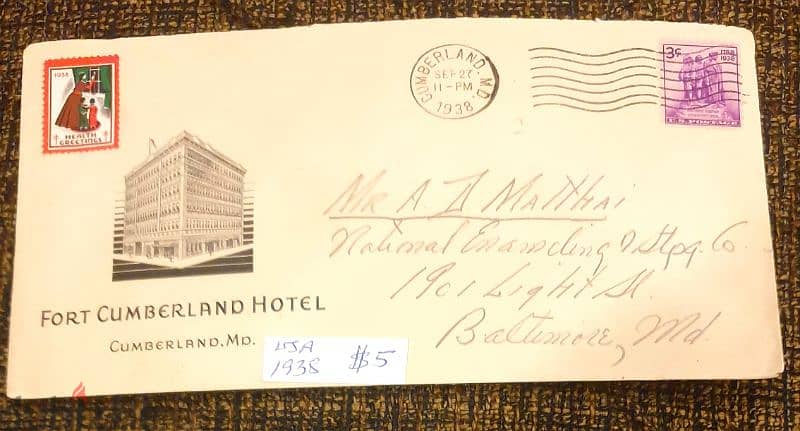 1938
HEALTH
GREETINGS
CUMBERLAND, MD.
SEP 27
11-PM
1938
3¢
1788
1938
U.S. POSTAGE
FORT CUMBERLAND HOTEL
CUMBERLAND, MD.
Mr A. D Matthai
National Enameling & Stpg. Co.
1901 Light St.
Baltimore, Md.
USA
1938 $5